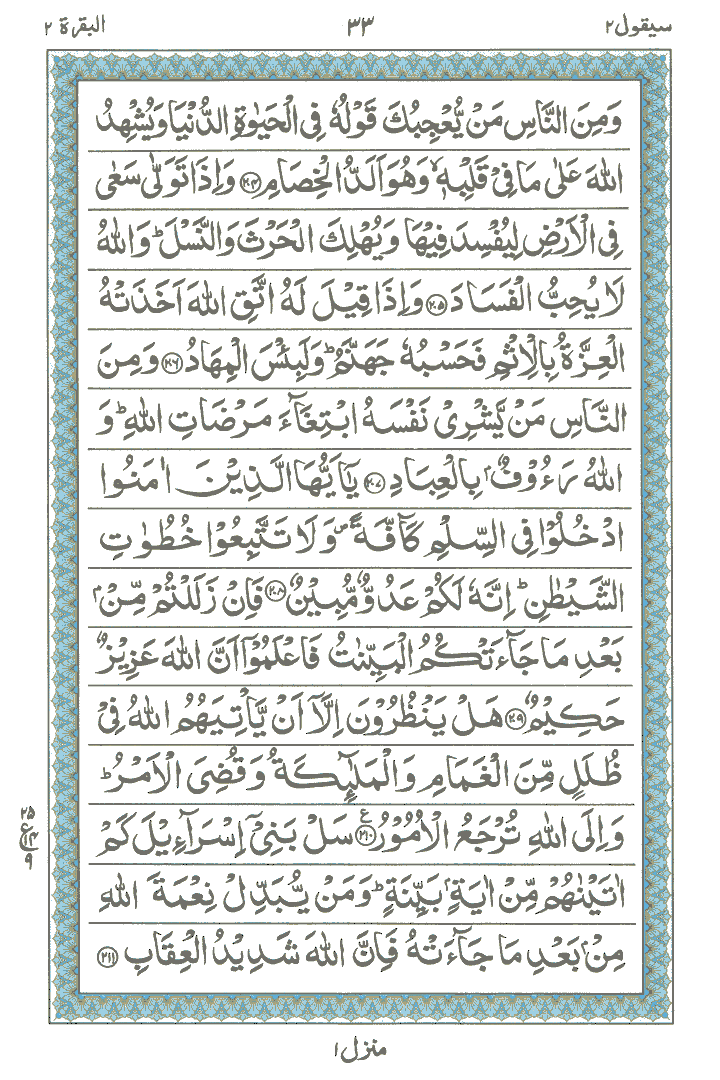 سيقول٢ ٣٣ البقرة ٢
وَمِنَ النَّاسِ مَنْ يُّعْجِبُكَ قَوْلُهٗ فِى الْحَيٰوةِ الدُّنْيَا وَيُشْهِدُ
اللّٰهَ عَلٰى مَا فِىْ قَلْبِهٖ ۙ وَهُوَ اَلَدُّ الْخِصَامِ ﴿۲۰۴﴾ وَاِذَا تَوَلّٰى سَعٰى
فِى الْاَرْضِ لِيُفْسِدَ فِيْهَا وَيُهْلِكَ الْحَرْثَ وَالنَّسْلَ ؕ وَاللّٰهُ
لَا يُحِبُّ الْفَسَادَ ﴿۲۰۵﴾ وَاِذَا قِيْلَ لَهُ اتَّقِ اللّٰهَ اَخَذَتْهُ
الْعِزَّةُ بِالْاِثْمِ فَحَسْبُهٗ جَهَنَّمُ ؕ وَلَبِئْسَ الْمِهَادُ ﴿۲۰۶﴾ وَمِنَ
النَّاسِ مَنْ يَّشْرِىْ نَفْسَهُ ابْتِغَآءَ مَرْضَاتِ اللّٰهِ ؕ وَ
اللّٰهُ رَءُوْفٌۢ بِالْعِبَادِ ﴿۲۰۷﴾ يٰٓاَيُّهَا الَّذِيْنَ اٰمَنُوا
ادْخُلُوْا فِى السِّلْمِ كَآفَّةً ۖ وَلَا تَتَّبِعُوْا خُطُوٰتِ
الشَّيْطٰنِ ؕ اِنَّهٗ لَكُمْ عَدُوٌّ مُّبِيْنٌ ﴿۲۰۸﴾ فَاِنْ زَلَلْتُمْ مِّنْۢ
بَعْدِ مَا جَآءَتْكُمُ الْبَيِّنٰتُ فَاعْلَمُوْٓا اَنَّ اللّٰهَ عَزِيْزٌ
حَكِيْمٌ ﴿۲۰۹﴾ هَلْ يَنْظُرُوْنَ اِلَّآ اَنْ يَّاْتِيَهُمُ اللّٰهُ فِىْ
ظُلَلٍ مِّنَ الْغَمَامِ وَالْمَلٰٓئِكَةُ وَقُضِىَ الْاَمْرُ ؕ
وَاِلَى اللّٰهِ تُرْجَعُ الْاُمُوْرُ ﴿۲۱۰﴾ ع سَلْ بَنِىْٓ اِسْرَآءِيْلَ كَمْ
۲۵
ع
۱۴
۹
اٰتَيْنٰهُمْ مِّنْ اٰيَةٍۭ بَيِّنَةٍ ؕ وَمَنْ يُّبَدِّلْ نِعْمَةَ اللّٰهِ
مِنْۢ بَعْدِ مَا جَآءَتْهُ فَاِنَّ اللّٰهَ شَدِيْدُ الْعِقَابِ ﴿۲۱۱﴾
منزل١